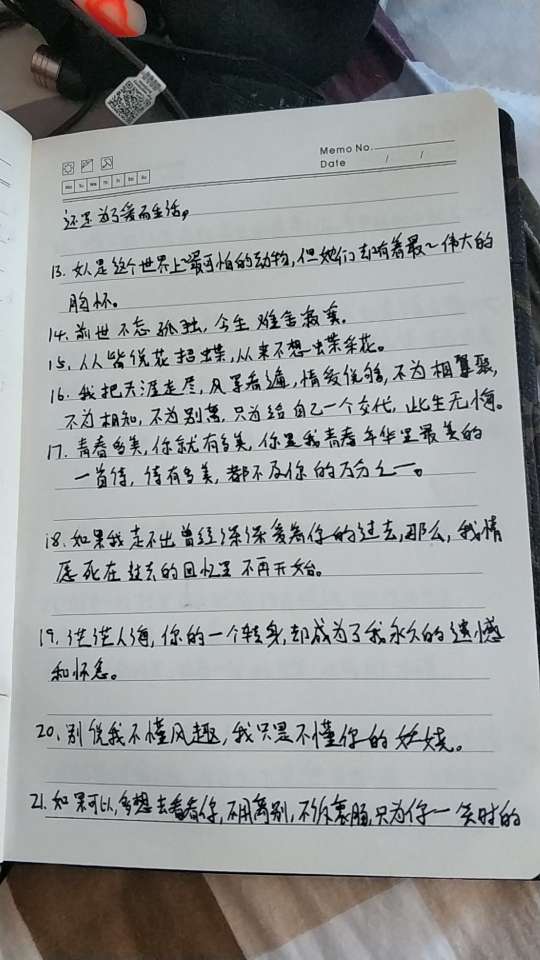 Memo No.
Date / /
Mo Tu We Th Fr Sa Su
还是为了爱而生活。
13. 女人是这个世界上最可怕的动物,但她们却有着最伟大的
胸怀。
14. 前世不忘孤独,今生难舍寂寞。
15. 人人皆说花招蝶,从来不想蝶采花。
16. 我把天涯走尽,风景看遍,情爱说够,不为相聚,
不为相知,不为别离,只为给自己一个交代,此生无悔。
17. 青春多美,你就有多美,你是我青春年华里最美的
一首诗,诗有多美,都不及你的万分之一。
18. 如果我走不出曾经深深爱着你的过去,那么,我情
愿死在过去的回忆里不再开始。
19. 茫茫人海,你的一个转身,却成为了我永久的遗憾
和怀念。
20. 别说我不懂风趣,我只是不懂你的妖娆。
21. 如果可以,多想去看看你,不用离别,不诉衷肠,只为你一笑时的